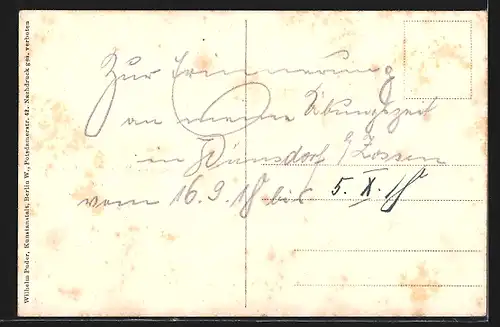 Zur Erinnerung
an meine Übungszeit
in Wünsdorf b/Zossen
vom 16.9.18 bis 5.X.18
Wilhelm Puder, Kunstanstalt, Berlin W., Potsdamerstr. 41. Nachdruck ges. verboten